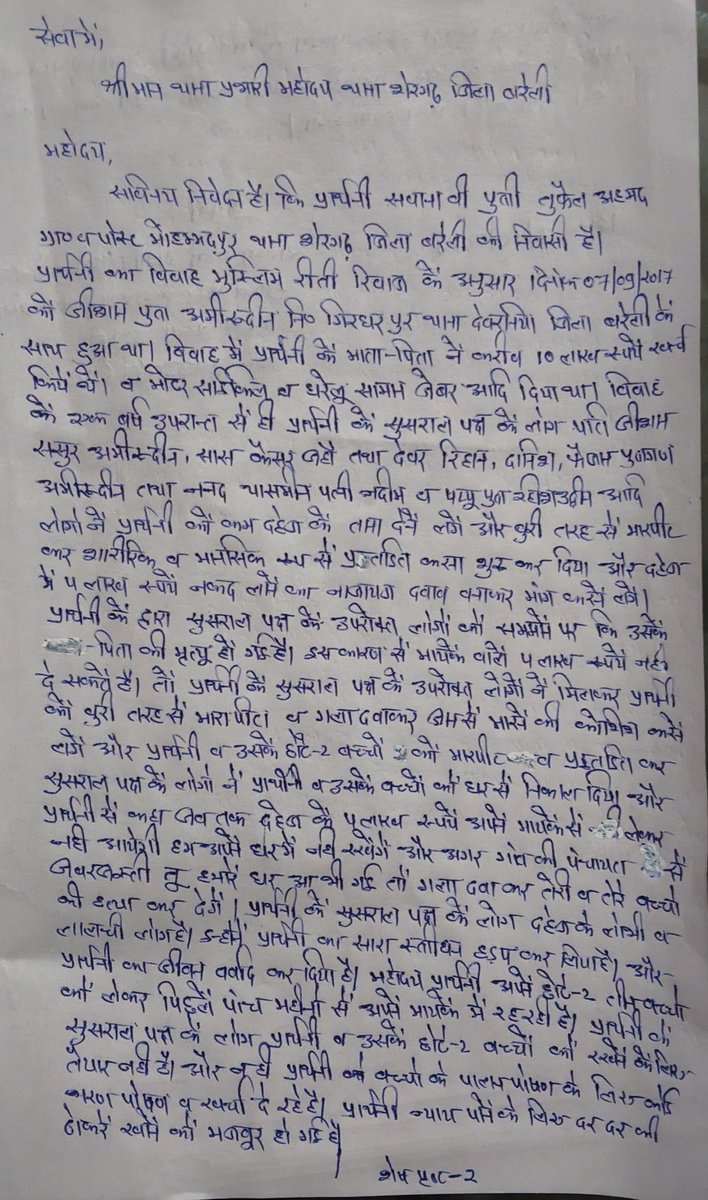 सेवा में,
श्रीमान थाना प्रभारी महोदय थाना शेरगढ़ जिला बरेली
महोदय,
सविनय निवेदन है। कि प्रार्थनी सवाना वी पुत्री तुफैल अहमद
ग्रा० व पोस्ट मोहम्मदपुर थाना शेरगढ़ जिला बरेली की निवासी है।
प्रार्थनी का विवाह मुस्लिम रीती रिवाज के अनुसार दिनांक 07/09/2017
को जीशान पुत्र अमीरूद्दीन नि० गिरधरपुर थाना देवरनिया जिला बरेली के
साथ हुआ था। विवाह में प्रार्थनी के माता-पिता ने करीब 10 लाख रूपये खर्च
किये थे। व मोटर साईकिल व घरेलू सामान जेबर आदि दिया था। विवाह
के एक बर्ष उपरान्त से ही प्रार्थनी के सुसराल पक्ष के लोग पति जीशान
ससुर अमीरूद्दीन, सास कैसर जहाँ तथा देवर रिहान, दानिश, फैजान पुत्रगण
अमीरूद्दीन तथा ननद यासमीन पत्नी नदीम व पप्पू पुत्र आदि
लोगों ने प्रार्थनी को कम दहेज के ताना देने लगे और बुरी तरह से मारपीट
कर शारीरिक व मानसिक रूप से प्रताडित करना शुरू कर दिया और दहेज
में 5 लाख रूपये नकद लाने का नाजायज दवाव बनाकर मांग करने लगे।
प्रार्थनी के द्वारा सुसराल पक्ष के उपरोक्त लोगों को समझाने पर कि उसके
-पिता की मृत्यु हो गई है। इस कारण से मायके वाले 5 लाख रूपये नही
दे सकते है। तो प्रार्थनी के सुसराल पक्ष के उपरोक्त लोगों ने मिलकर प्रार्थनी
को बुरी तरह से मारा पीटा व गला दवाकर जान से मारने की कोशिश करने
लगे और प्रार्थनी व उसके छोटे-2 बच्चों को मारपीट व प्रताडित कर
सुसराल पक्ष के लोगों ने प्रार्थनी व उसके बच्चों को घर से निकाल दिया और
प्रार्थनी से कहा जब तक दहेज के 5 लाख रूपये अपने मायके से लेकर
नही आयेगी हम अपने घर में नही रखेंगे और अगर गांव की पंचायत से
जबरजस्ती तू हमारे घर आ भी गई तो गला दवा कर तेरी व तेरे बच्चो
की हत्या कर देगें। प्रार्थनी के सुसराल पक्ष के लोग दहेज के लोभी व
लालची लोग है। इन्होंने प्रार्थनी का सारा स्त्रीधन हड़प कर लिया है। और
प्रार्थनी का जीवन बर्बाद कर दिया है। महोदय प्रार्थनी अपने छोटे-2 तीन बच्चो
को लेकर पिछले पांच महीनों से अपने मायके में रह रही है। प्रार्थनी के
सुसराल पक्ष के लोग प्रार्थनी व उसके छोटे-2 बच्चों को रखने के लिए
तैयार नही है। और न ही प्रार्थनी को बच्चो के पालन पोषण के लिए कोई
भरण पोषण व खर्चा दे रहे है। प्रार्थनी न्याय पाने के लिए दर दर की
ठोकरें खाने को मजबूर हो गई है।
शेष पृष्ट-2